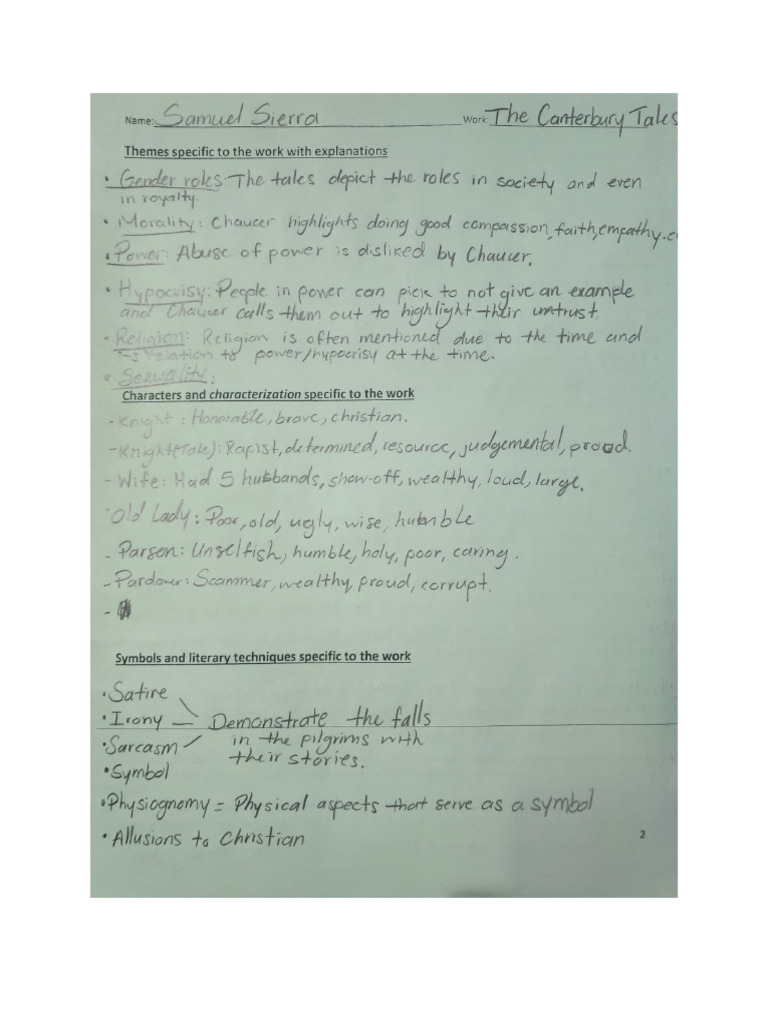 Name: Samuel Sierra Work: The Canterbury Tales
Themes specific to the work with explanations
• Gender roles: The tales depict the roles in society and even
in royalty.
• Morality: Chaucer highlights doing good compassion, faith, empathy.
• Power: Abuse of power is disliked by Chaucer.
• Hypocrisy: People in power can pick to not give an example
and Chaucer calls them out to highlight their untrust.
• Religion: Religion is often mentioned due to the time and
relation to power/hypocrisy at the time.
• Sexuality:
Characters and characterization specific to the work
- Knight: Honorable, brave, christian.
- Knight(Tale): Rapist, determined, resource, judgemental, proud.
- Wife: Had 5 husbands, show-off, wealthy, loud, large.
- Old Lady: Poor, old, ugly, wise, humble
- Parson: Unselfish, humble, holy, poor, caring.
- Pardoner: Scammer, wealthy, proud, corrupt.
-
Symbols and literary techniques specific to the work
• Satire
• Irony — Demonstrate the falls
• Sarcasm in the pilgrims with
their stories.
• Symbol
• Physiognomy = Physical aspects that serve as a symbol
• Allusions to Christian
2